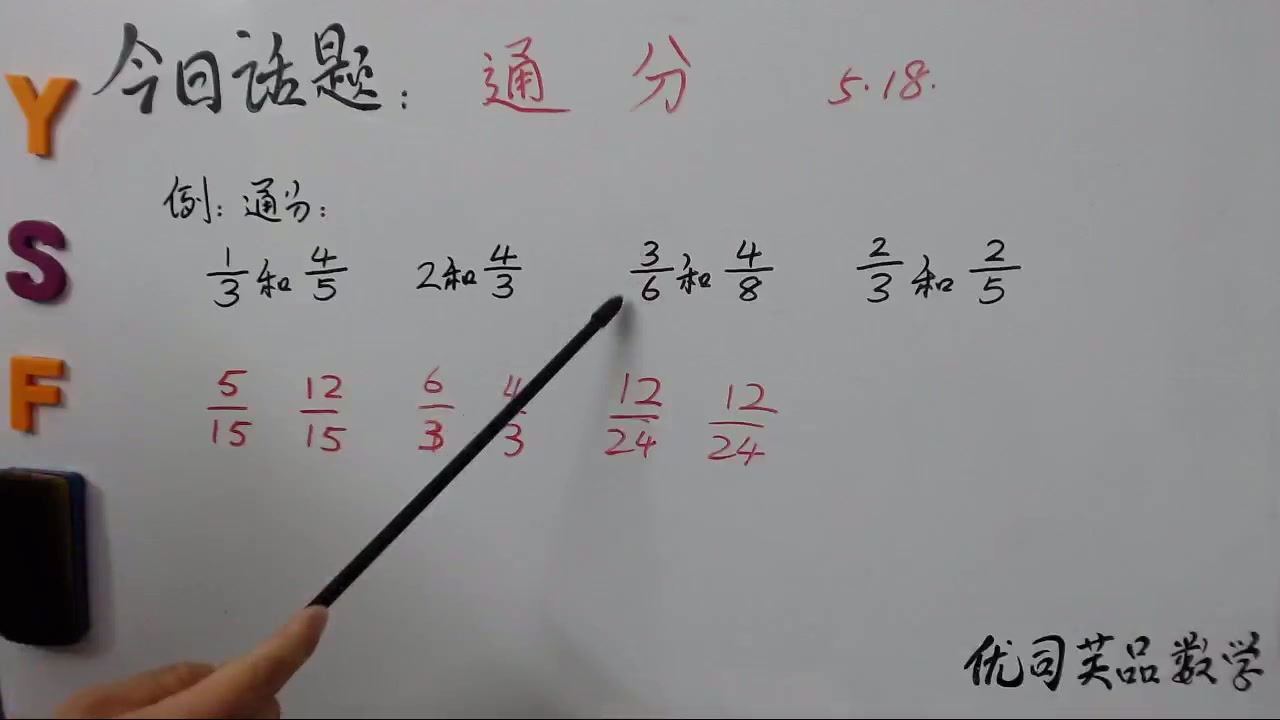 今日话题：通分 5.18.
例：通分：
1/3和4/5 2和4/3 3/6和4/8 2/3和2/5
5/15 12/15 6/3 4/3 12/24 12/24
Y
S
F
优司芙品数学